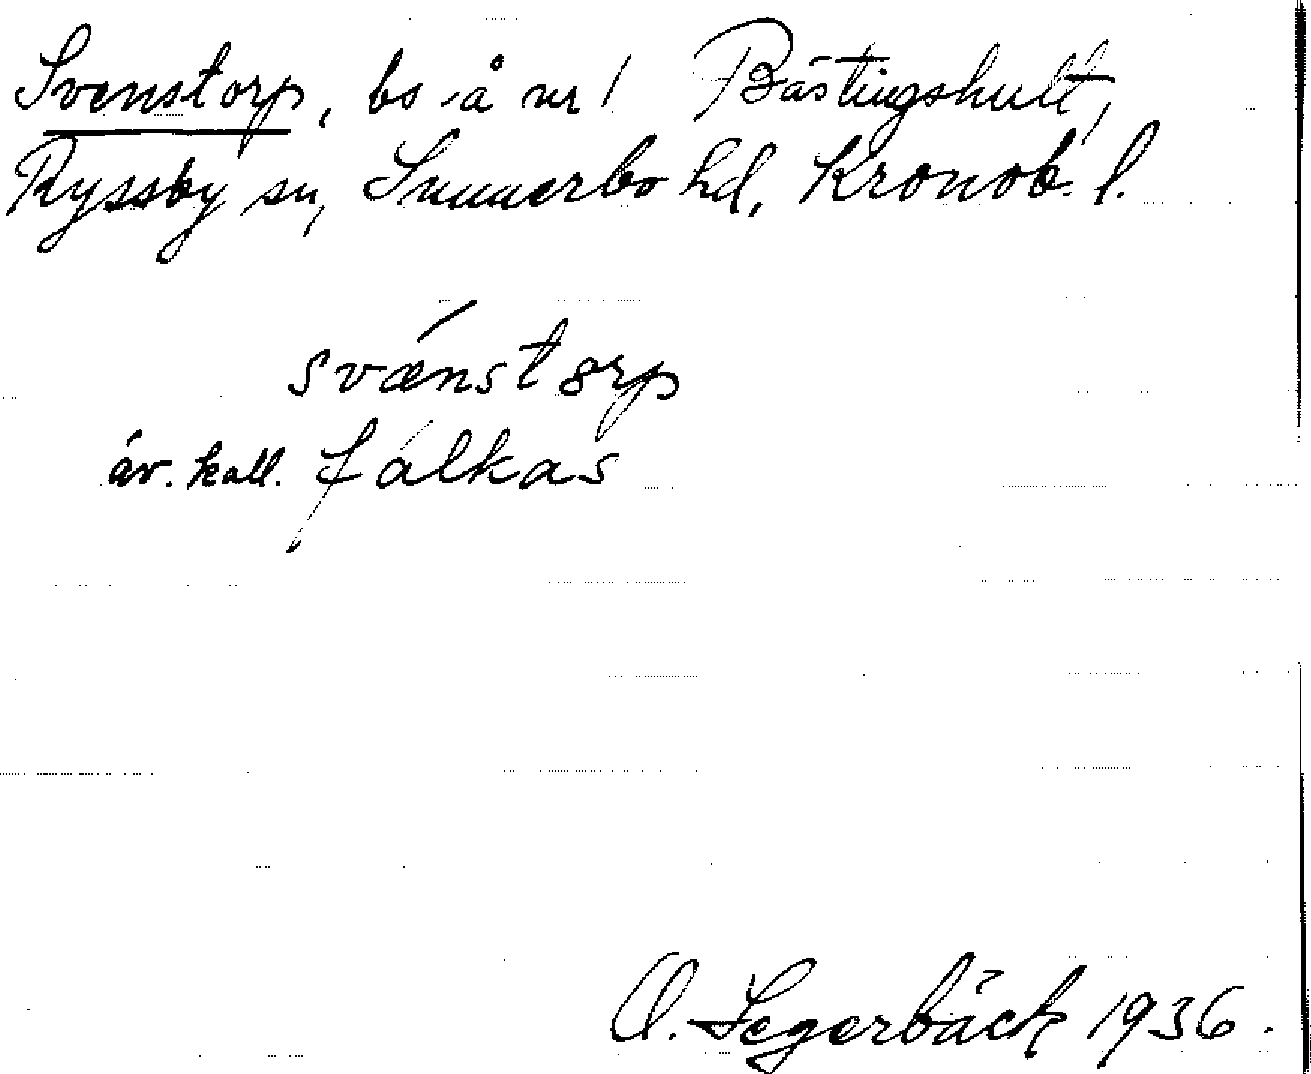 Svenstorp, bs å nr 1 Bästingshult,
Ryssby sn, Sunnerbo hd, Kronob. l.
svænstorp
äv. kall. fálkas
O. Segerbäck 1936.